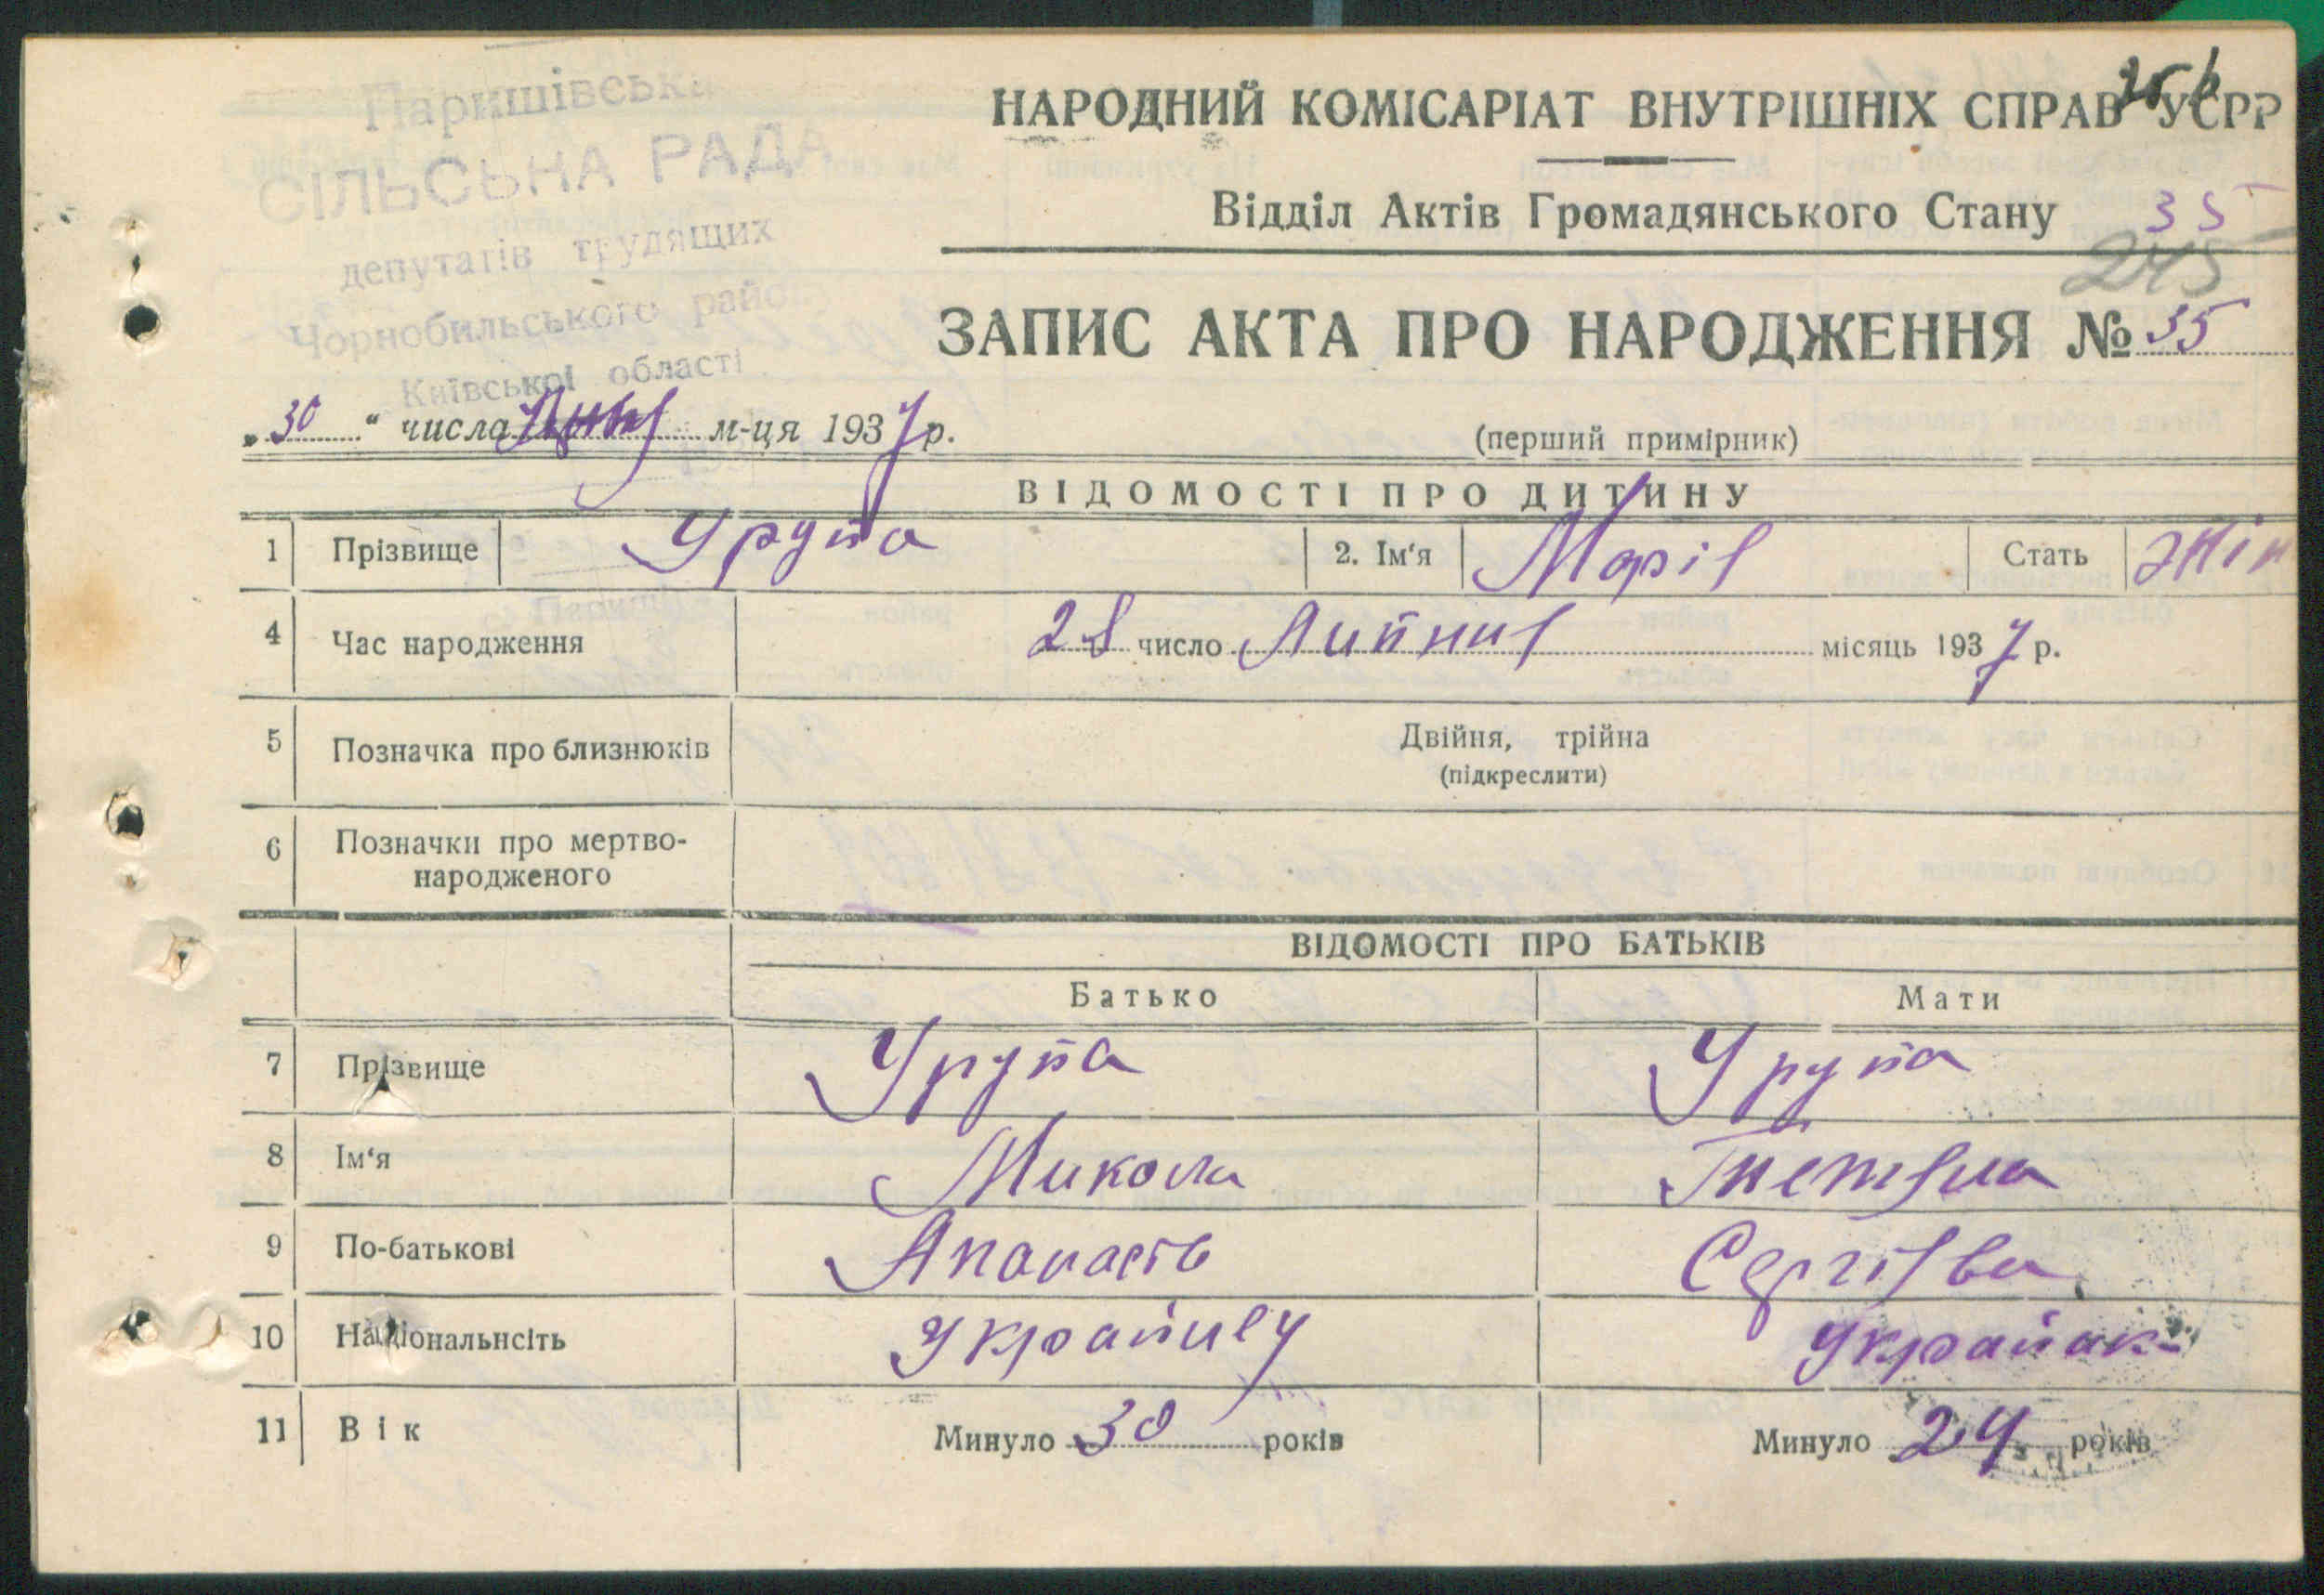 Паришівська
СІЛЬСЬКА РАДА
депутатів трудящих
Чорнобильського райо
Київської області
25 b
НАРОДНИЙ КОМІСАРІАТ ВНУТРІШНІХ СПРАВ УСРР
Відділ Актів Громадянського Стану 35
245
ЗАПИС АКТА ПРО НАРОДЖЕННЯ № 35
„30“ числа м-ця 1937 р.
(перший примірник)
ВІДОМОСТІ ПРО ДИТИНУ
1 Прізвище Урупа 2. Ім‘я Марія Стать Жін
4 Час народження 28 число Липня місяць 1937 р.
5 Позначка про близнюків Двійня, трійна
(підкреслити)
6 Позначки про мертво-
народженого
ВІДОМОСТІ ПРО БАТЬКІВ
Батько Мати
7 Прізвище Урупа Урупа
8 Ім‘я Микола Тетяна
9 По-батькові Апанасів Сергіява
10 Національнсіть
11 Вік Минуло 30 років Минуло 24 років